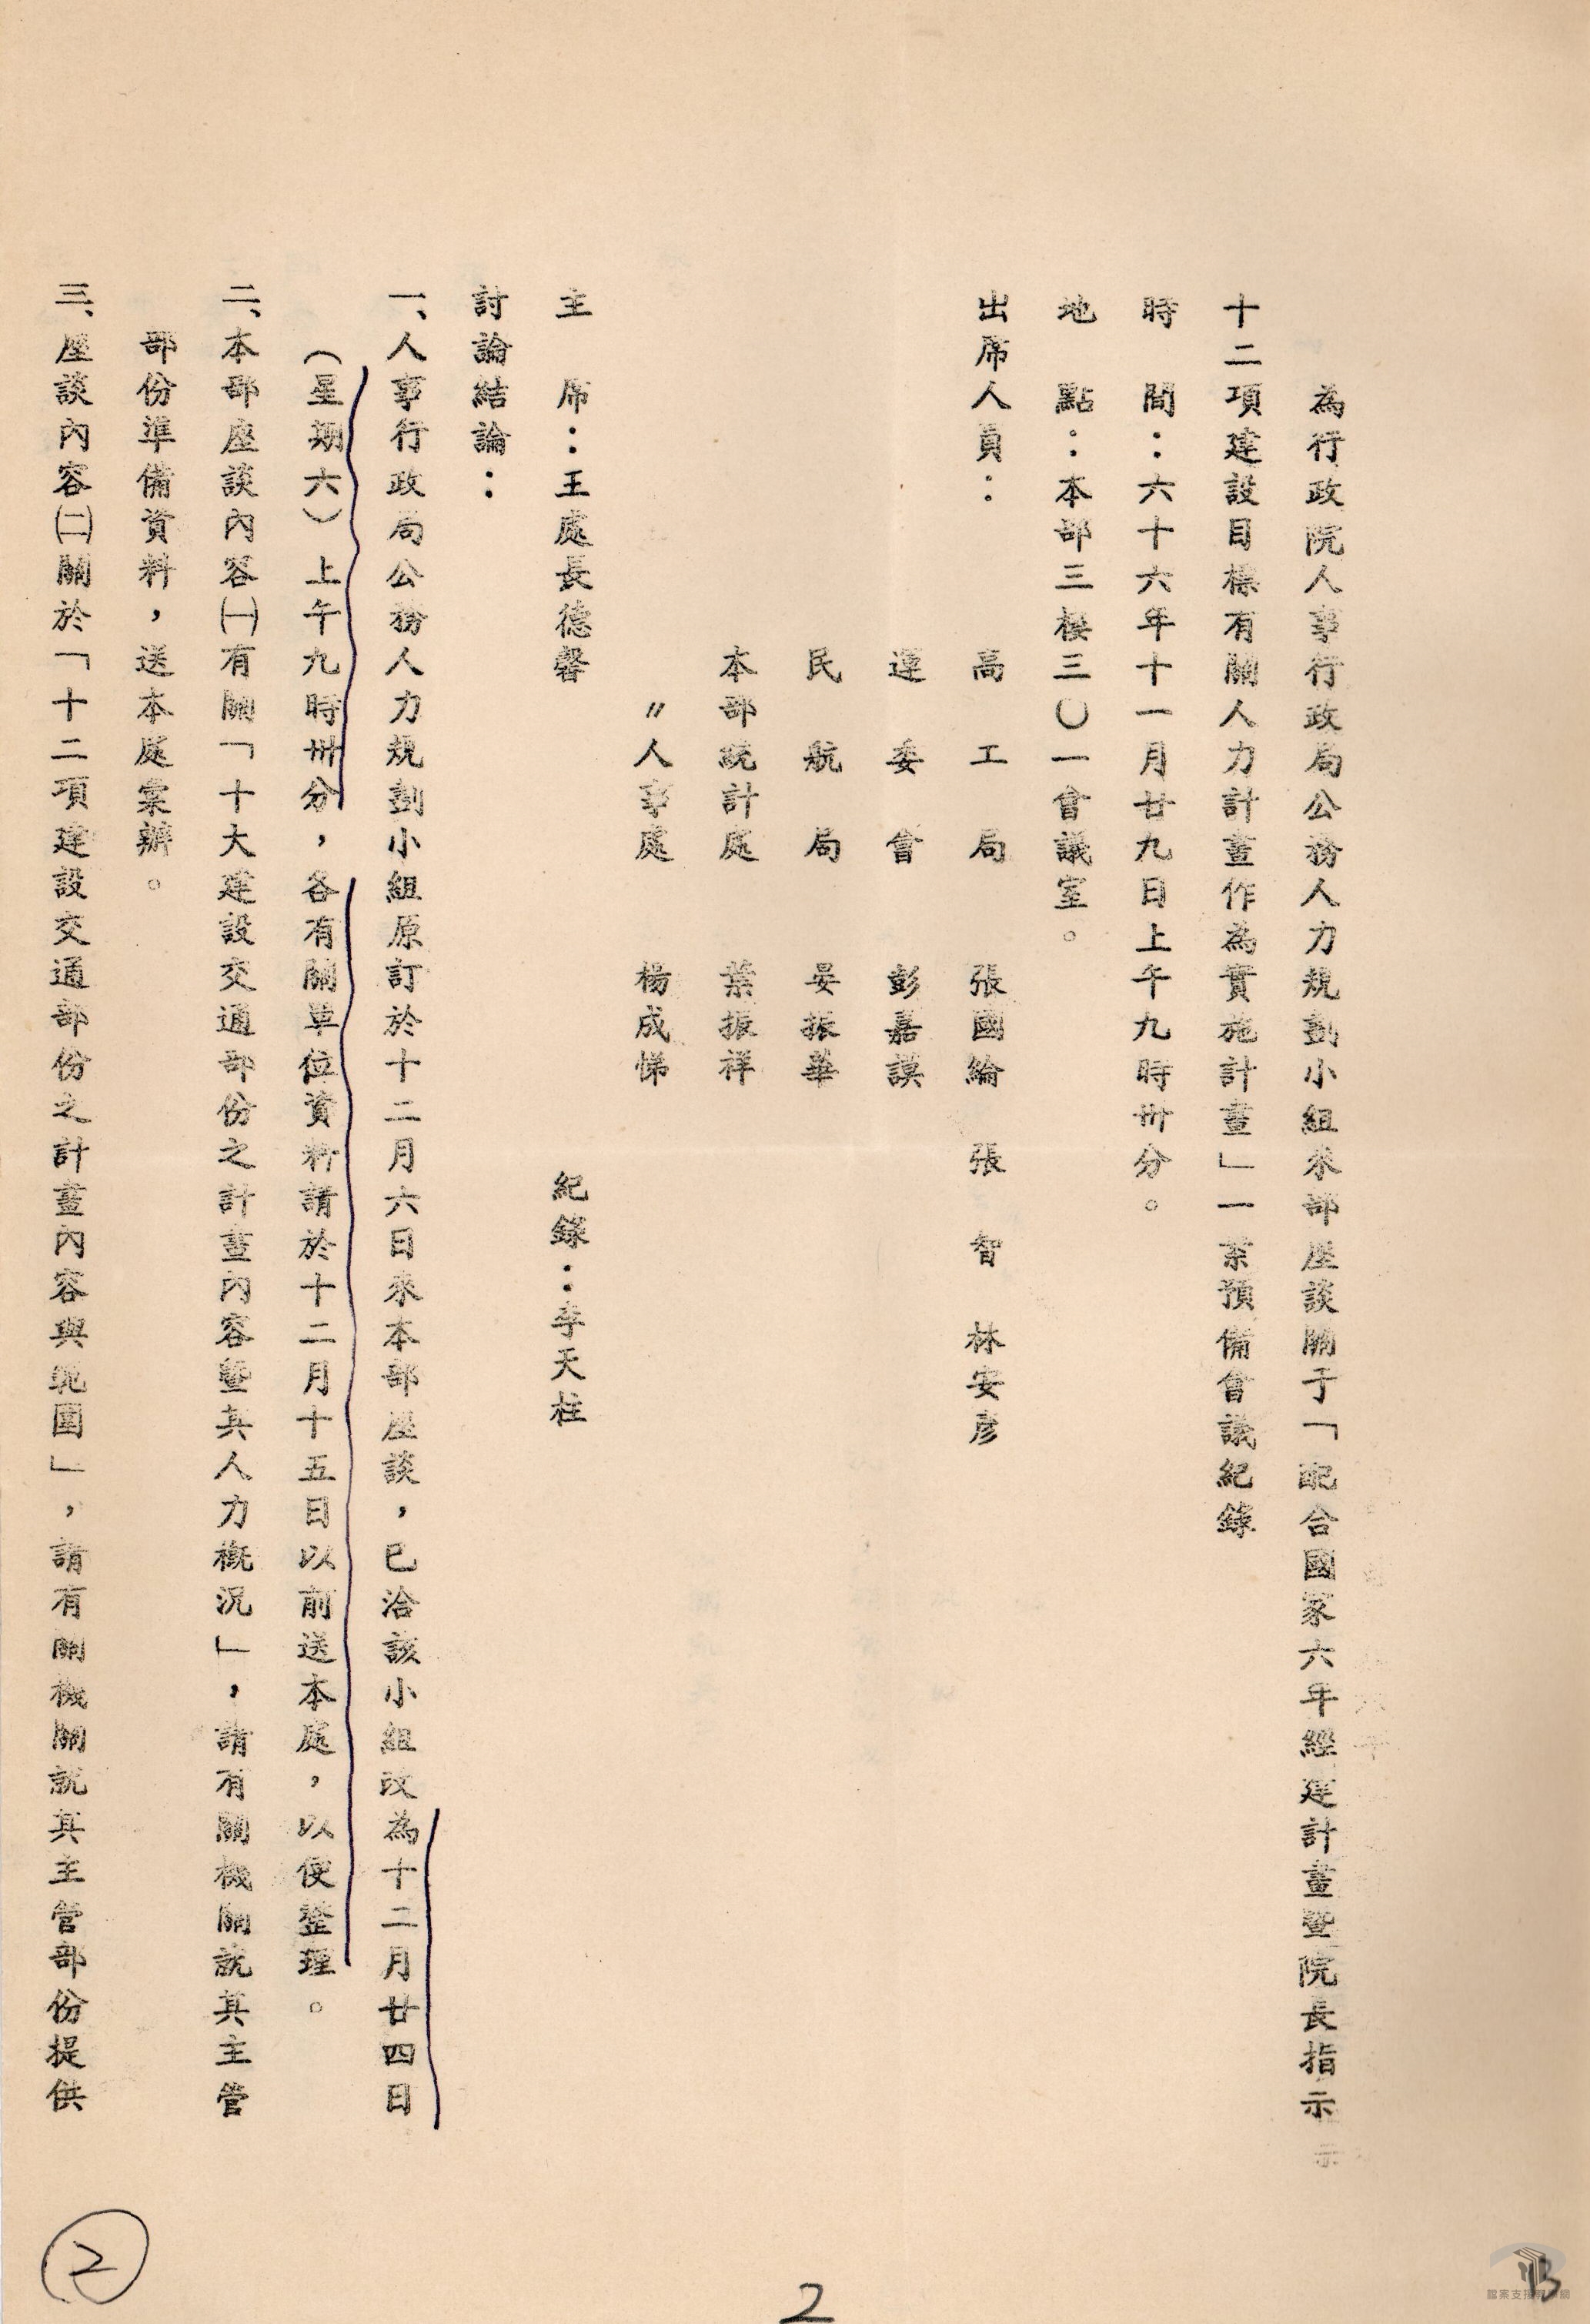 為行政院人事行政局公務人力規劃小組來部座談關于「配合國家六年經建計畫暨院長指示
十二項建設目標有關人力計畫作為實施計畫」一案預備會議紀錄
時　間：六十六年十一月廿九日上午九時卅分。
地　點：本部三樓三〇一會議室。
出席人員：
高工局　張國綸　張智　林安彥
運委會　彭嘉謨
民航局　晏振華
本部統計處　葉振祥
〃人事處　楊成悌
主　席：王處長德馨　紀錄：李天柱
討論結論：
一、人事行政局公務人力規劃小組原訂於十二月六日來本部座談，已洽該小組改為十二月廿四日
（星期六）上午九時卅分，各有關單位資料請於十二月十五日以前送本處，以便整理。
二、本部座談內容㈠有關「十大建設交通部份之計畫內容暨其人力概況」，請有關機關就其主管
部份準備資料，送本處彙辦。
三、座談內容㈡關於「十二項建設交通部份之計畫內容與範圍」，請有關機關就其主管部份提供
2
2
檔案支援教學網